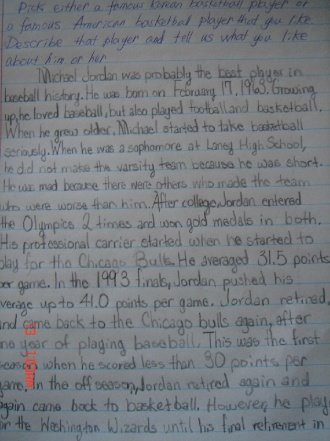 Pick either a famous Korean basketball player or
a famous American basketball player that you like
Describe that player and tell us what you like
about him or her
Michael Jordan was probably the best player in
baseball history. He was born on February 17, 1963. Growing
up, he loved baseball, but also played football and basketball.
When he grew older, Michael started to take basketball
seriously. When he was a sophomore at Laney High School,
he did not make the varsity team because he was short.
He was mad because there were others who made the team
who were worse than him. After college, Jordan entered
the Olympics 2 times and won gold medals in both.
His professional carrier started when he started to
play for the Chicago Bulls. He averaged 31.5 points
per game. In the 1993 finals, Jordan pushed his
verage up to 41.0 points per game. Jordan retired,
and came back to the Chicago bulls again, after
ne year of playing baseball. This was the first
season when he scored less than 30 points per
game. In the off season, Jordan retired again and
again came back to basketball. However, he play
or the Washington Wizards until his final retirement in